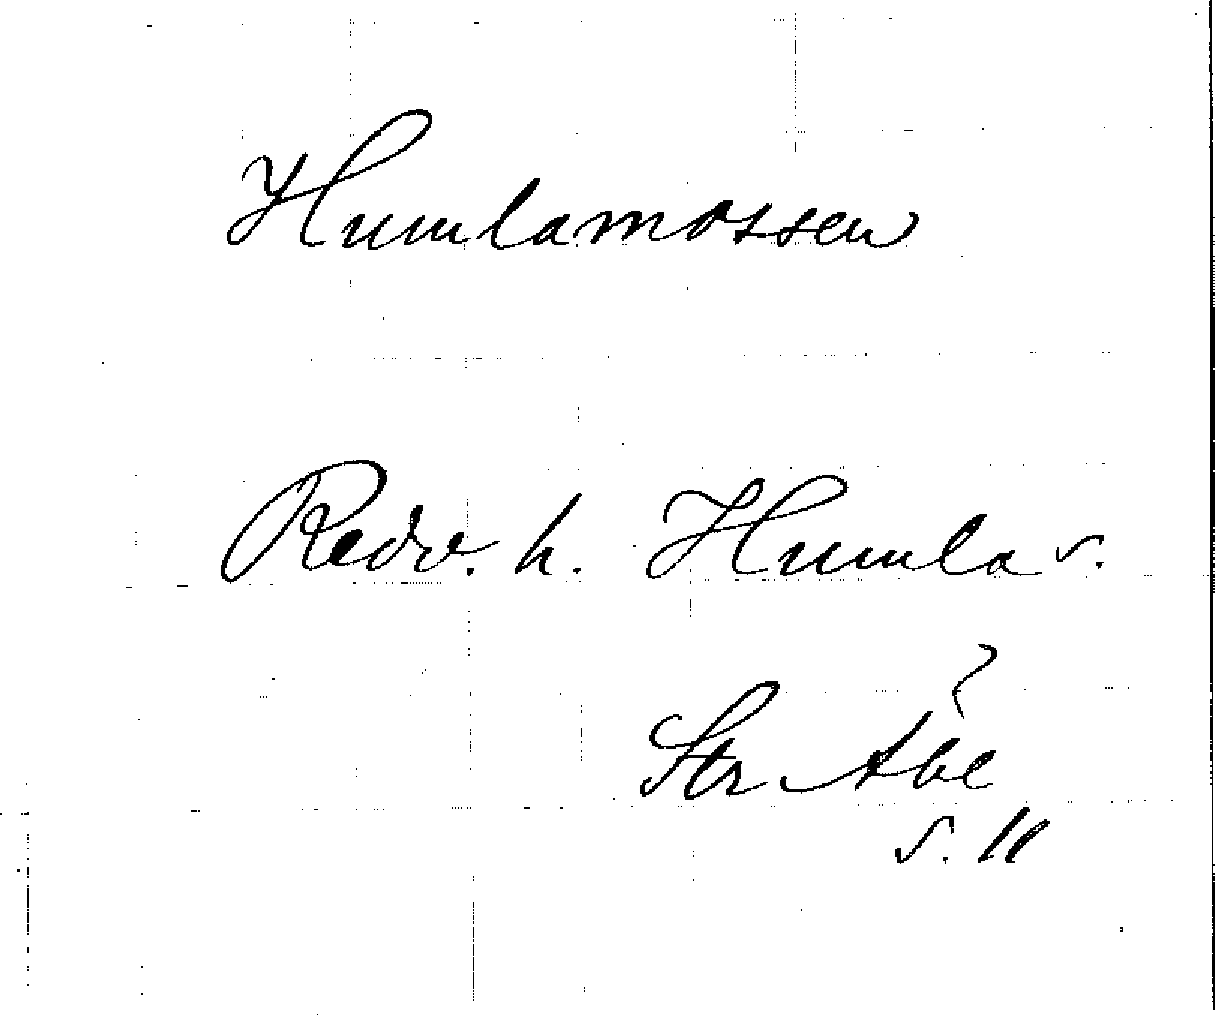 Humlamossen
Redv. h. Humla s.
Str Åbe
s. 11